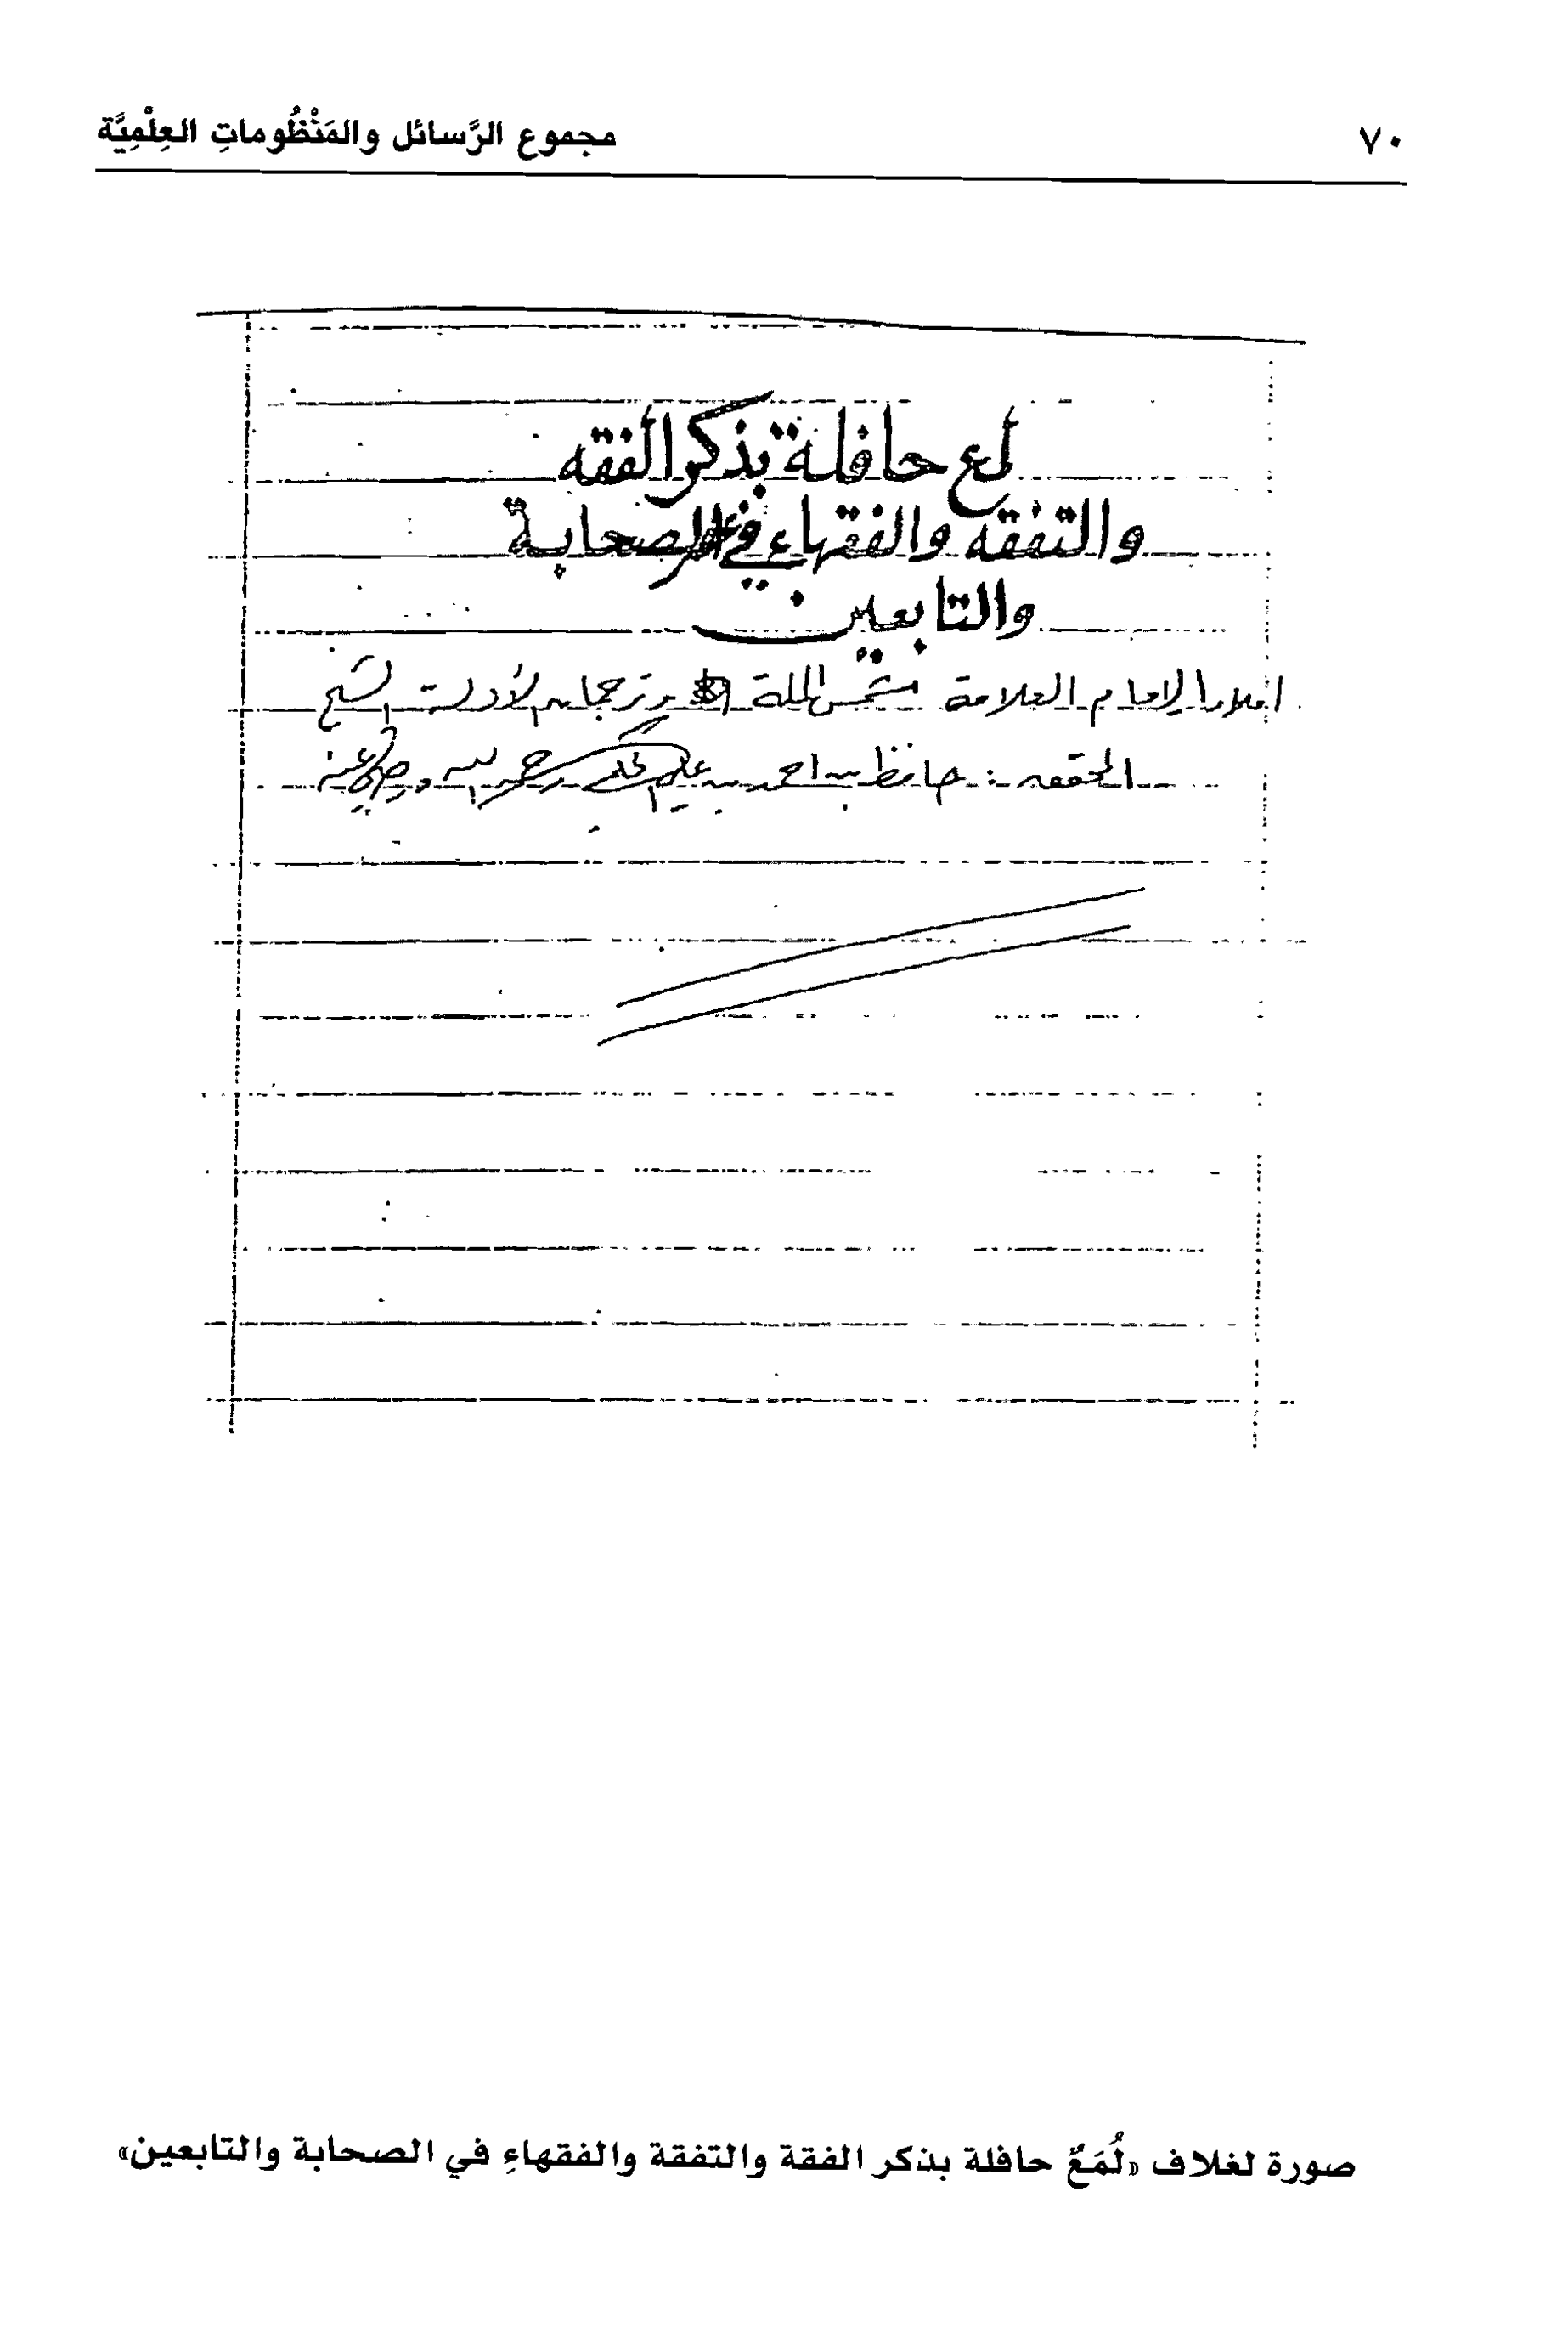 ٧٠ مجموع الرَّسائل والمَنْظُوماتِ العِلْمِيَّة
لمع حافلة بذكر الفقه
والتفقه والفقهاء في الصحابة
والتابعين
املاء الإمام العلامة شمس الملة وترجمان الأدلة الشيخ
المحقق : حافظ بن احمد بن علي الحكمي رحمه الله ورضي عنه
صورة لغلاف «لُمَعٌ حافلة بذكر الفقة والتفقة والفقهاءِ في الصحابة والتابعين»